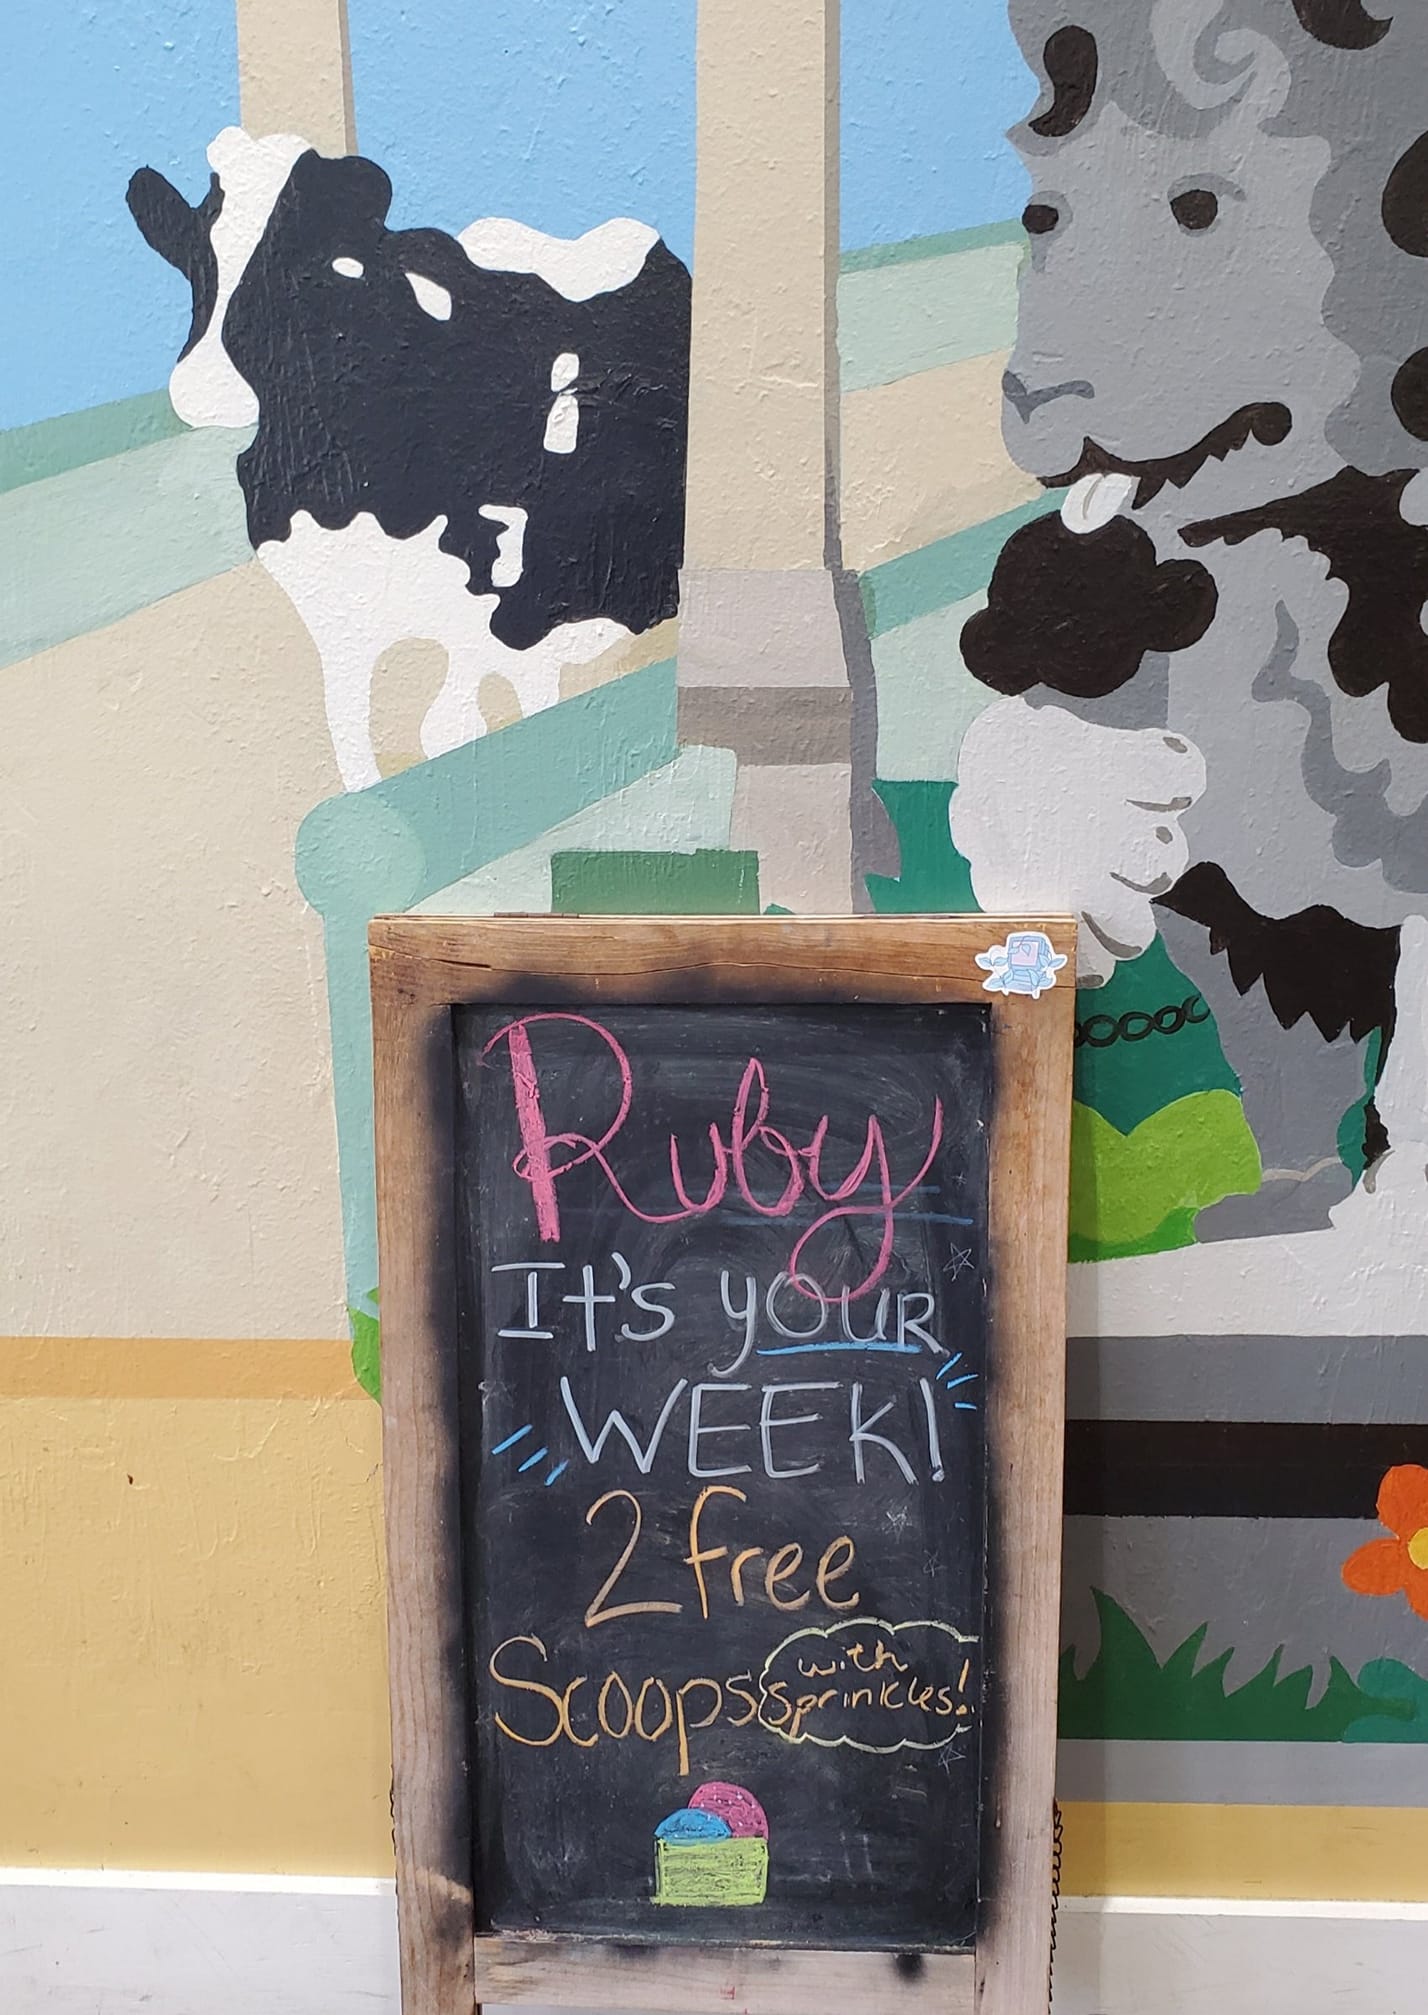 Ruby
It's yOUR
WEEK!
2 free
Scoops
with
sprinkles!